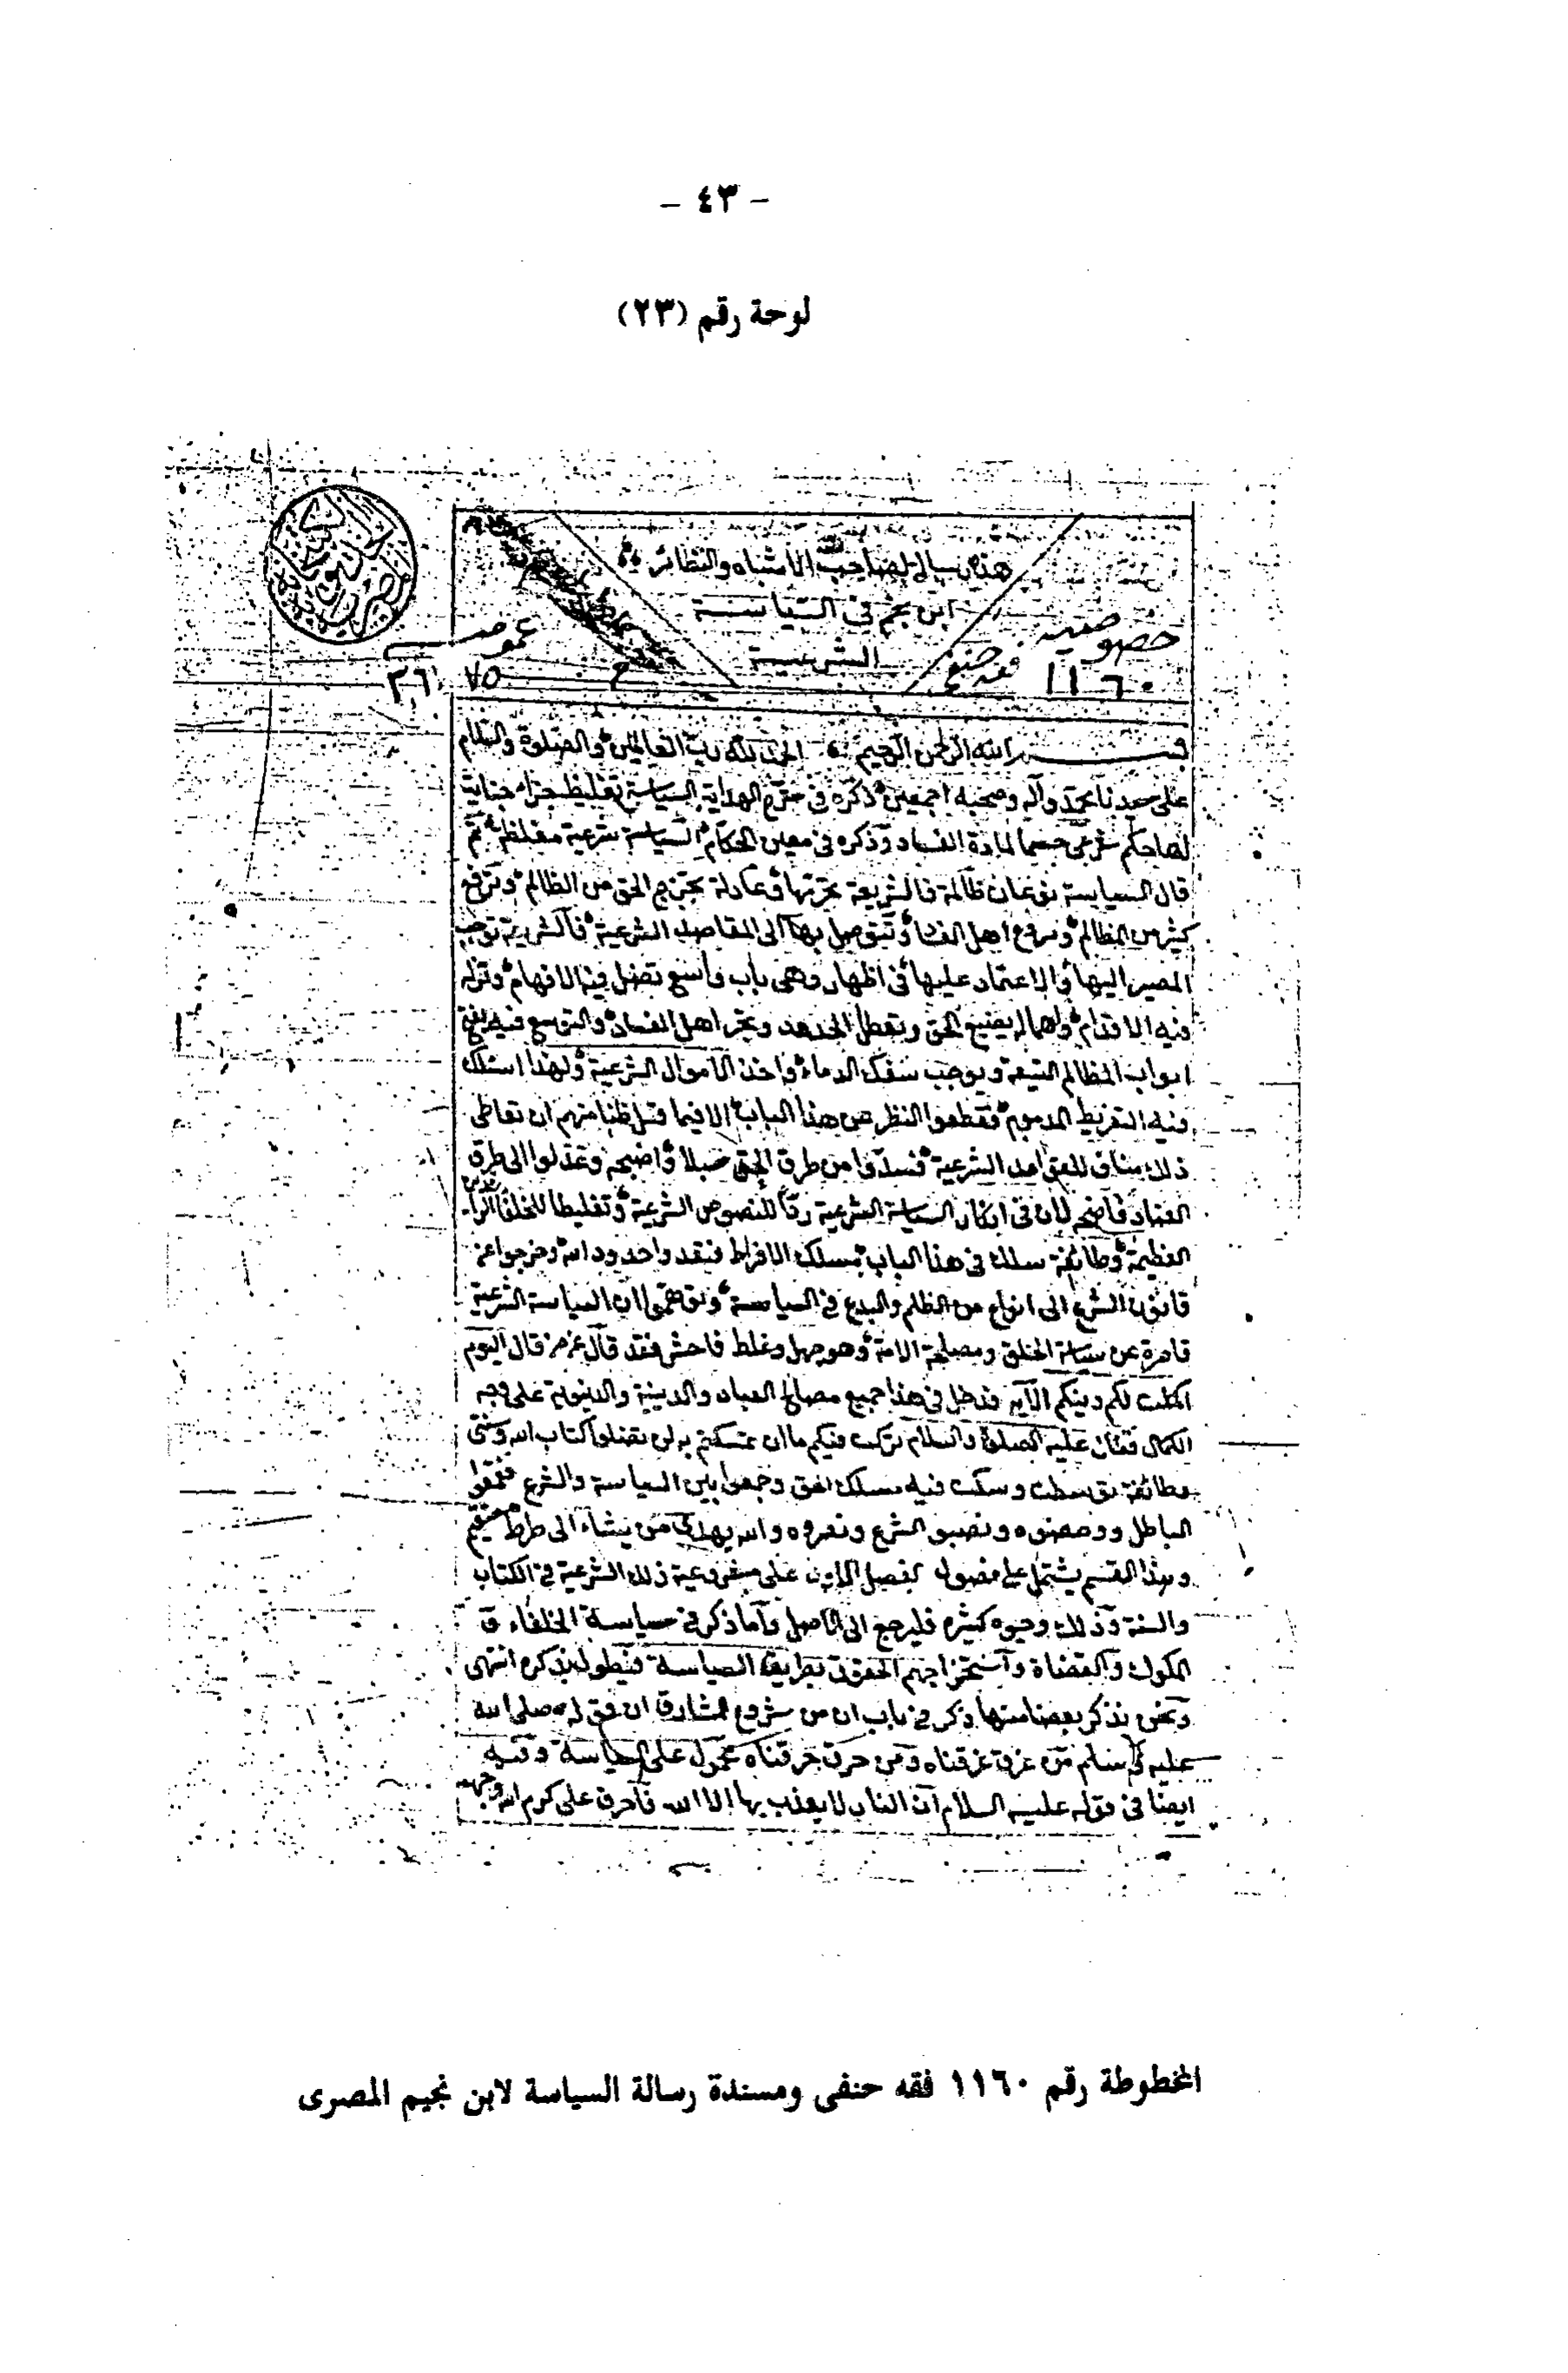 - ٤٣ -
لوحة رقم (٢٣)
هذه رسالة لصاحب الأشباه والنظائر
ابن نجيم في السياسة
الشرعية
خصوصيه
١١٦٠ فقه حنفي
عمومي
٣٦١ ٧٥
بسم الله الرحمن الرحيم الحمد لله رب العالمين والصلوة والسلام
على سيدنا محمد وآله وصحبه اجمعين ذكره في الهداية السياسة تغليظ جزاء جناية
لها حكم شرعي حسما لمادة الفساد وذكره في معين الحكام السياسة شرعية مغلظة ثم
قال السياسة نوعان ظالمة فالشريعة تحرمها وعادلة تخرج الحق من الظالم وترفع
كثير من المظالم وتردع اهل الفساد وتتوصل بها الى المقاصد الشرعية فالشريعة توجب
المصير اليها والاعتماد عليها في اظهار وهي باب واسع تضل فيه الافهام وتزل
فيه الاقدام واهماله يضيع الحق ويعطل الحدود ويجر اهل الفساد والتوسع فيه يفتح
ابواب المظالم الشنيعة ويوجب سفك الدماء واخذ الاموال الشرعية ولهذا اسلك
فيه التفريط المذموم فقطعوا النظر عن هذا الباب الا فيما قل ظنا منهم ان تعاطي
ذلك مناف للقواعد الشرعية فسدوا من طرق الحق سبلا واضحه وعدلوا الى طرق
العناد فاضحه لان في انكار السياسة الشرعية ردا للنصوص الشرعية وتغليطا للخلفا الراشدين
العظيمة وطائفة سلك في هذا الباب مسلك الافراط فتعدوا حدود الله وخرجوا عن
قانون الشرع الى انواع من الظلم والبدع في السياسة وتوهموا ان السياسة الشرعية
قاصرة عن سياسة الخلق ومصلحة الامة وهو جهل وغلط فاحش فقد قال عز من قال اليوم
اكملت لكم دينكم الآية فدخل في هذا جميع مصالح العباد والدينية والدنيوية على وجه
الكمال فقال عليه الصلوة والسلام تركت فيكم ما ان تمسكتم به لن تضلوا كتاب الله وسنتي
وطائفة توسطت وسكت فيه مسلك الحق وجمعوا بين السياسة والشرع فقمعوا
الباطل ودحضوه ونصبو الشرع ونصروه والله يهدى من يشاء الى صراط مستقيم
وهذا القسم يشتمل على فصول الفصل الاول على مشروعية ذلك الشرعية في الكتاب
والسنة وذلك وجوه كثيره فليرجع الى الاصل واما ذكر في سياسة الخلفاء و
الملوك والقضاة واستخراجهم الحقوق بطريق السياسة فيطول بذكره انتهى
ونحن نذكر بعضا منها ذكر في باب ان من شروح المشارق ان قوله صلى الله
عليه وسلم من غرق غرقناه ومن حرق حرقناه محمول على السياسة وفيه
ايضا في قوله عليه السلام ان النار لا يعذب بها الا الله فاحرق على كرم الله وجهه
المخطوطة رقم ١١٦٠ فقه حنفى ومسندة رسالة السياسة لابن نجيم المصرى